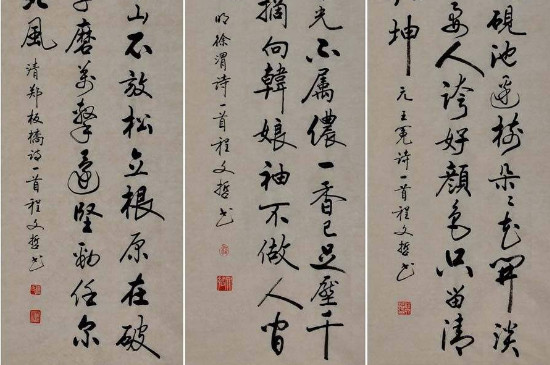 硯池邊樹朵々花開淡
要人誇好顏色只留清
坤
元王冕诗一首程文哲书
光不属儂一香已足壓千
摘向韓娘袖不做人间
明徐渭诗一首程文哲书
山不放松立根原在破
磨萬擊還堅勁任尔
風
清郑板橋诗一首程文哲书